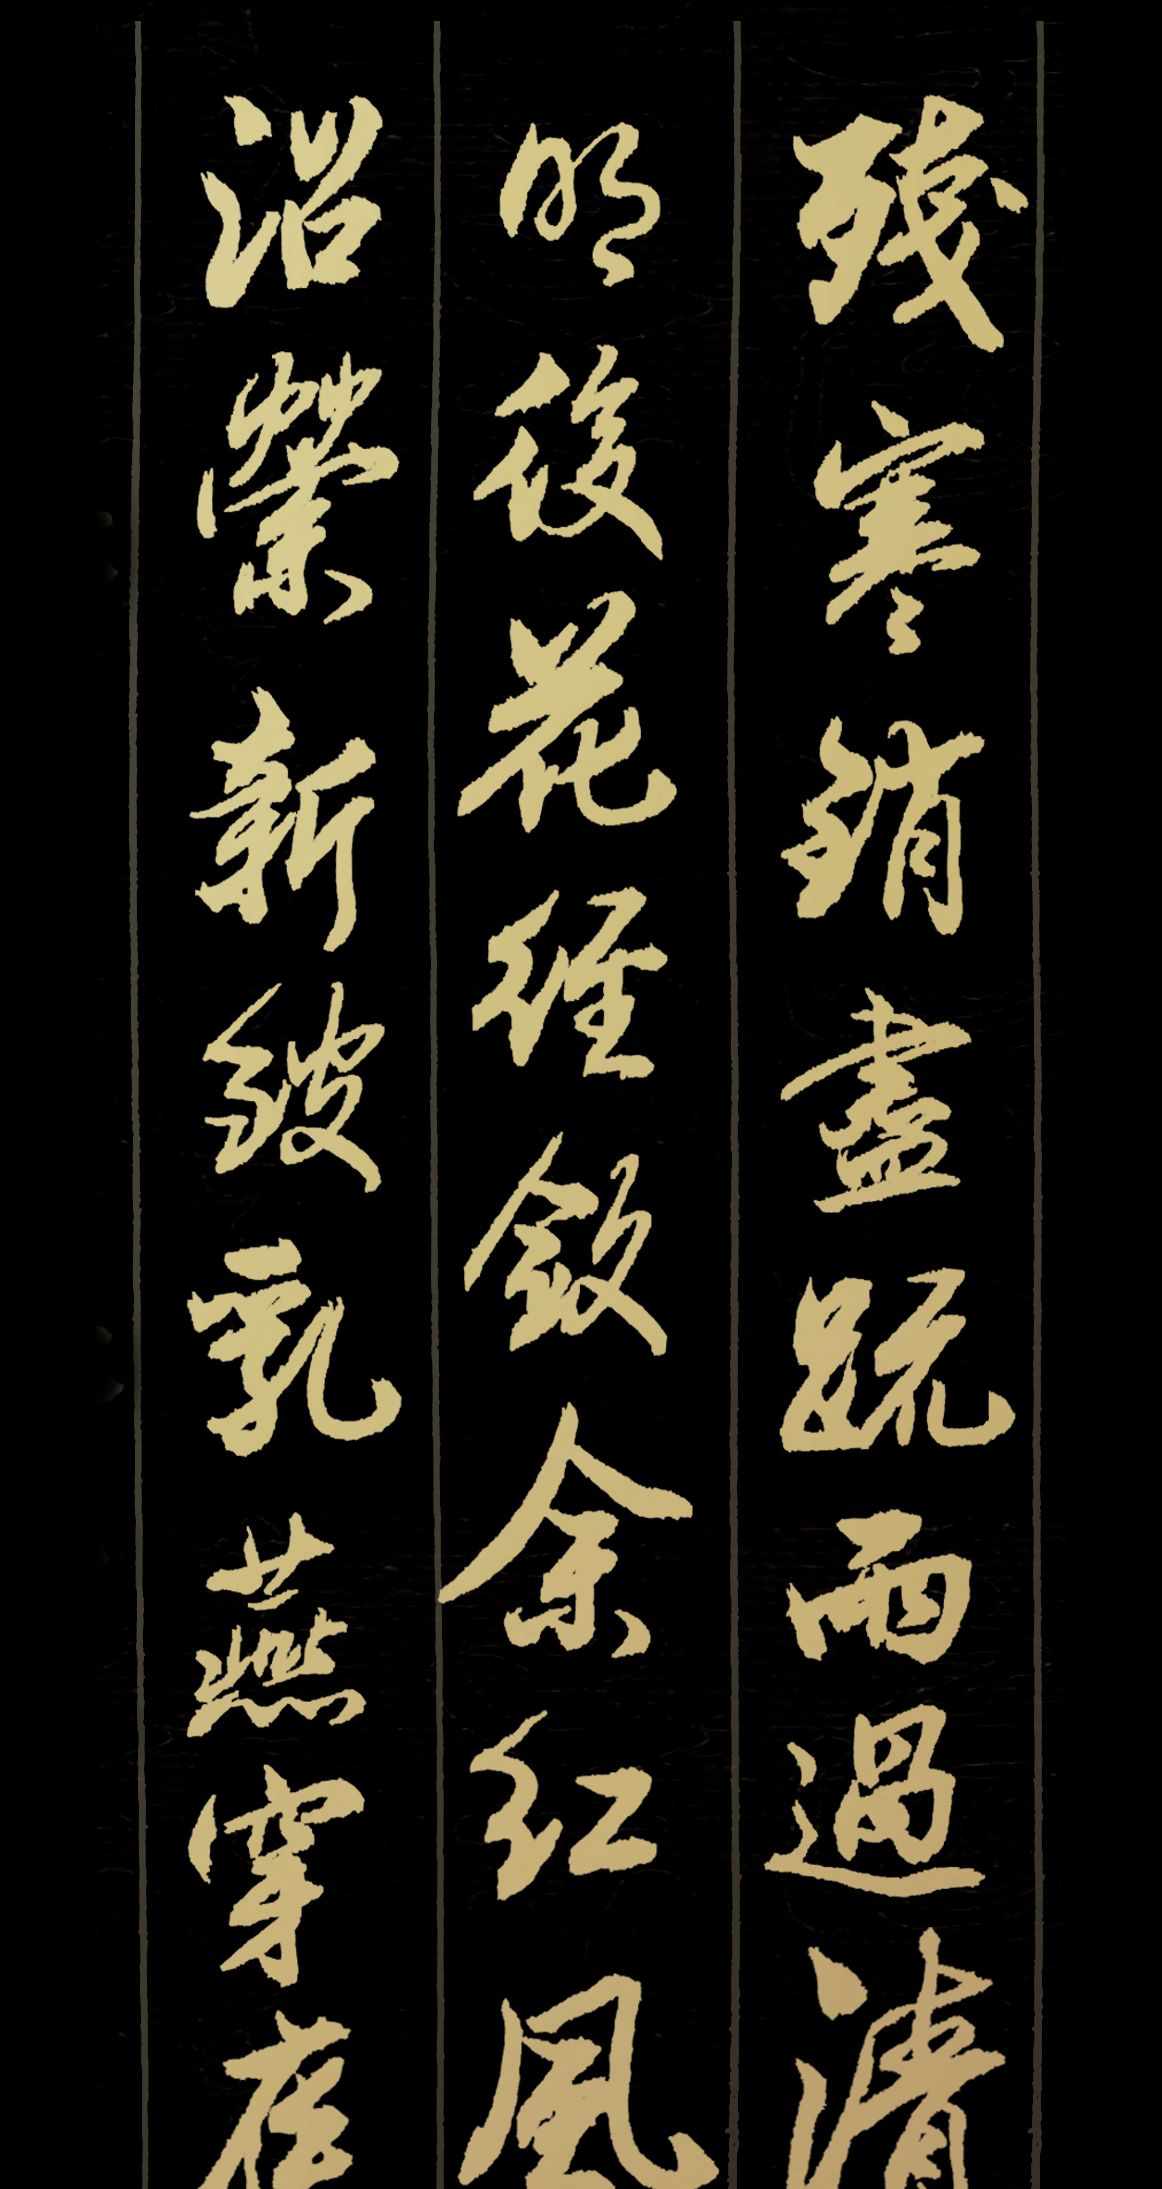 殘寒銷盡疏雨過清
明後花徑斂余紅風
沼縈新皺乳燕穿庭